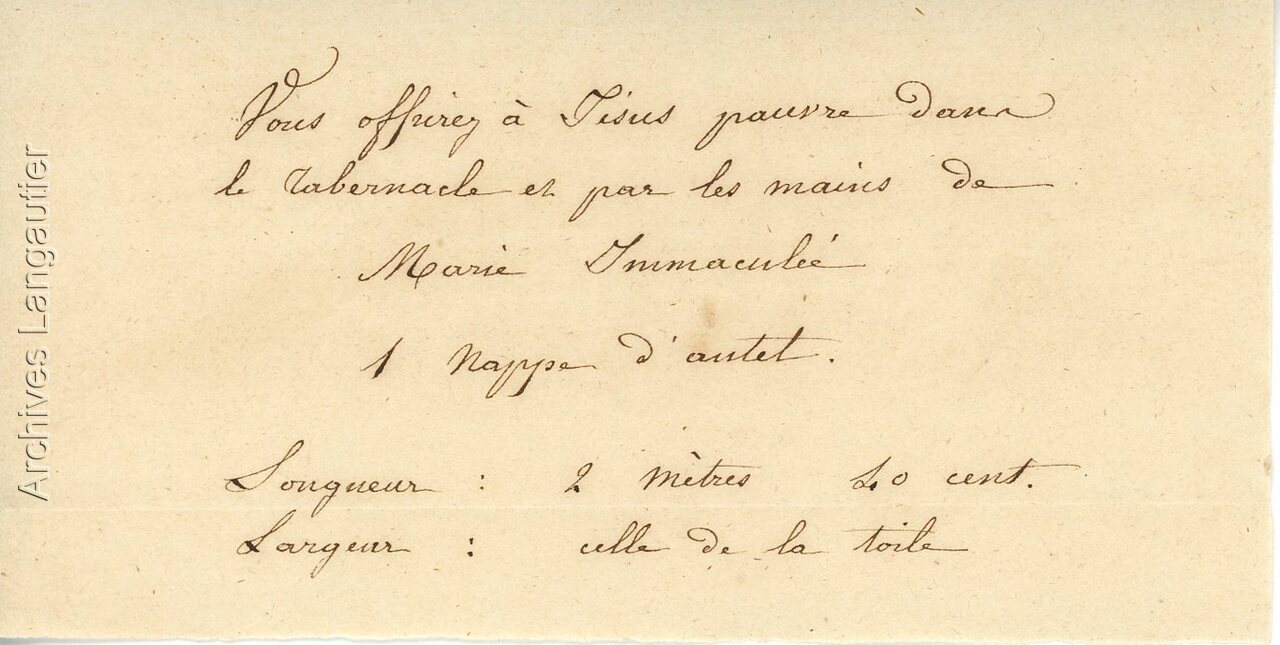 Vous offrirez à Jésus pauvre dans
le Tabernacle et par les mains de
Marie Immaculée
1 Nappe d'autel.
Longueur : 2 mètres 40 cent.
Largeur : celle de la toile
Archives Langautier